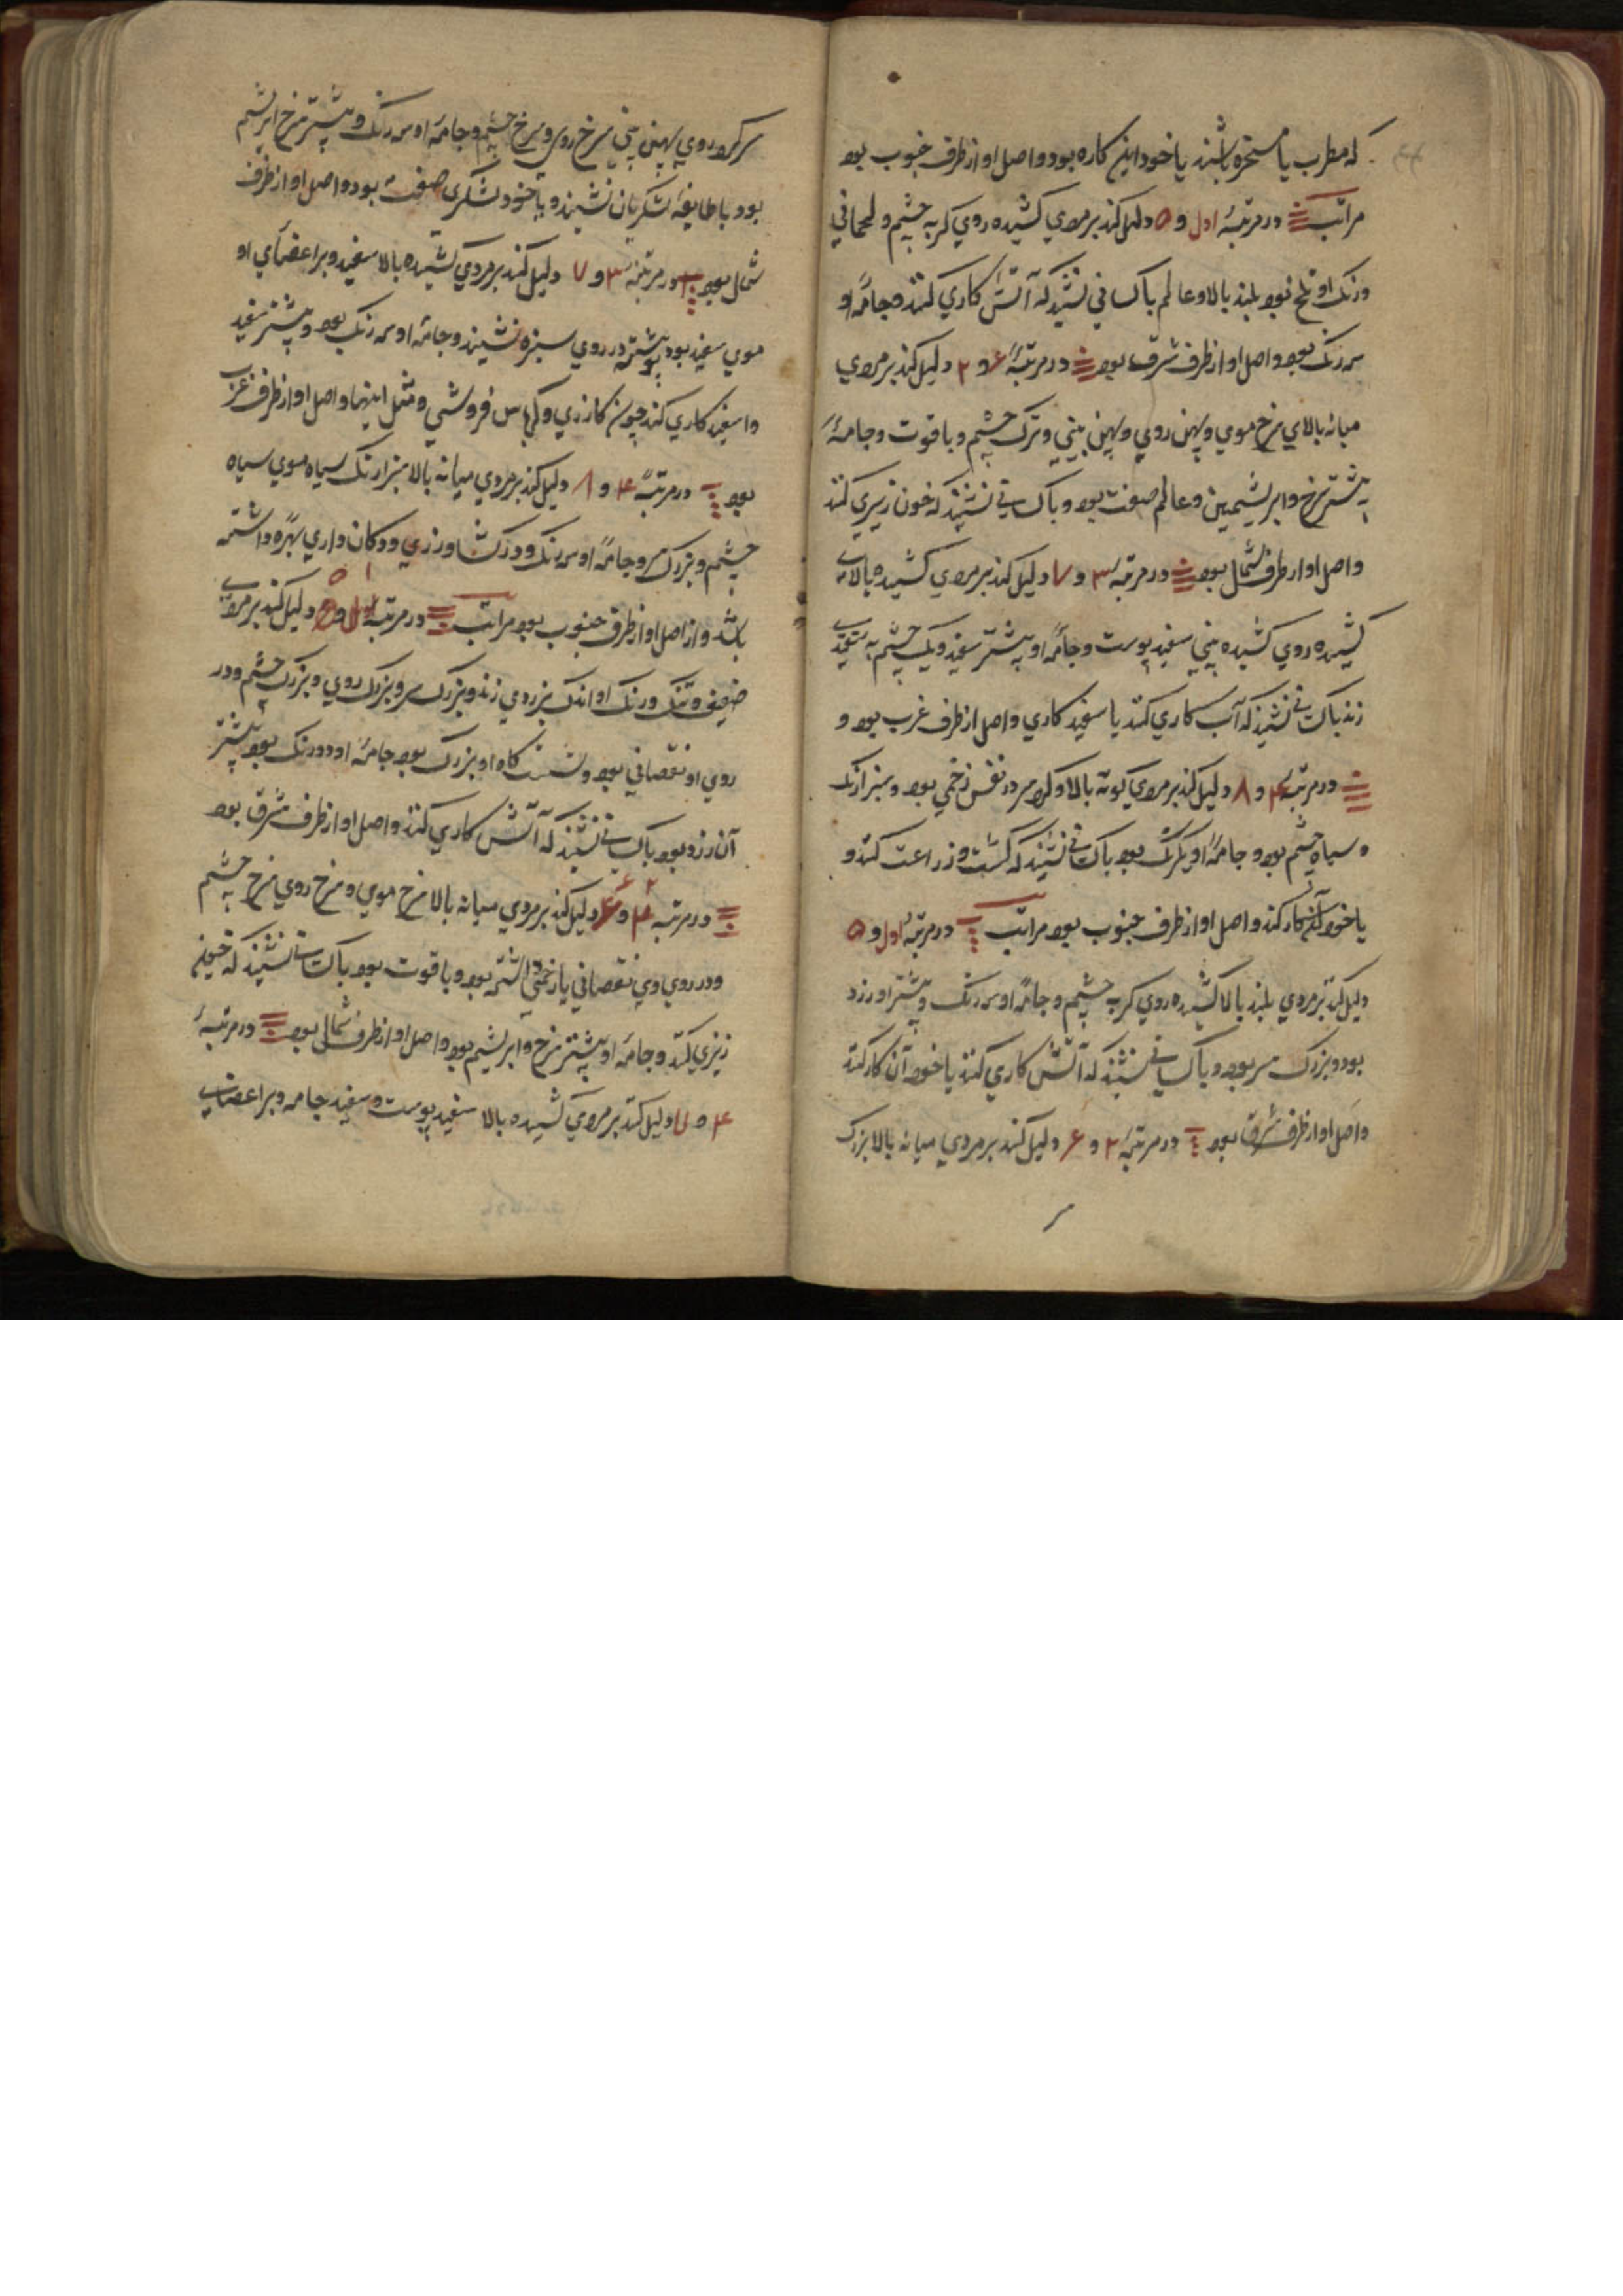 که مطرب یا مسخره باشند یا خود این کاره بود و اصل او از طرف جنوب بود
مراتب در مرتبهٔ اول و ۵ دلیل کند بر مردی کشیده روی گربه چشم و لحمانی
و رنک او تلخ بود بلند بالا و عالم با کسانی نشیند که آتش کاری کنند و جامهٔ او
سه رنک بود و اصل او از طرف شرق بود در مرتبهٔ ۶ و ۲ دلیل کند بر مردی
میانه بالای سرخ موی و پهن روی و پهن بینی و ترک چشم و با قوت و جامهٔ
بیشتر سرخ و ابریشمین و عالم صفت بود و با کسانی نشیند که خون ریزی کنند
و اصل او از طرف شمال بود در مرتبهٔ ۳ و ۷ دلیل کند بر مردی کشیده بالای
کشیده روی کشیده بینی سفید پوست و جامهٔ او بیشتر سفید و یک چشم به سفیدی
زند با کسانی نشیند که آب کاری کنند یا سفید کاری و اصل از طرف غرب بود و
در مرتبهٔ ۴ و ۸ دلیل کند بر مردی کوته بالا و کرد سر در نفس زخمی بود و سبزارنک
و سیاه چشم بود و جامهٔ او یکرنک بود با کسانی نشیند که کشت و زراعت کنند و
یا خود آن کار کند و اصل او از طرف جنوب بود مراتب در مرتبهٔ اول و ۵
دلیل کند بر مردی بلند بالا کشیده روی گربه چشم و جامهٔ او سه رنک و بیشتر او زرد
بود و بزرک سر بود و با کسانی نشیند که آتش کاری کنند یا خود آن کار کند
و اصل او از طرف شرق بود در مرتبهٔ ۲ و ۶ دلیل کند بر مردی میانه بالا بزرک
سر کرد روی پهن بینی سرخ روی و سرخ چشم و جامهٔ او سه رنک و بیشتر سرخ ابریشم
بود با طایفهٔ لشکریان نشیند و یا خود لشکری صفت بود و اصل او از طرف
شمال بود در مرتبهٔ ۳ و ۷ دلیل کند بر مردی کشیده بالا سفید و بر اعضای او
موی سفید بود بیشتر در روی سبزه نشیند و جامهٔ او سه رنک بود و بیشتر سفید
و اسفید کاری کند چون کازری و کرباس فروشی و مثل اینها و اصل او از طرف غرب
بود در مرتبهٔ ۴ و ۸ دلیل کند بر مردی میانه بالا سبزارنک سیاه موی سیاه
چشم و بزرک سر و جامهٔ او سه رنک و در کشاورزی و دکان داری بهره داشته
باشد و از اصل او از طرف جنوب بود مراتب در مرتبهٔ اول و ۵ دلیل کند بر مردی
ضعیف و تنک و رنک او اندک بزردی زند و بزرک سر و بزرک روی و بزرک چشم و در
روی او نقصانی بود و نشست کاه او بزرک بود جامهٔ او دو رنک بود بیشتر
آن زرد بود با کسانی نشیند که آتش کاری کنند و اصل او از طرف شرق بود
در مرتبهٔ ۲ و ۶ دلیل کند بر مردی میانه بالا سرخ موی و سرخ روی سرخ چشم
و در روی وی نقصانی یا زخمی داشته بود و با قوت بود با کسانی نشیند که خون
ریزی کند و جامهٔ او بیشتر سرخ و ابریشم بود و اصل او از طرف شمال بود در مرتبهٔ
۳ و ۷ دلیل کند بر مردی کشیده بالا سفید پوست و سفید جامه و بر اعضای